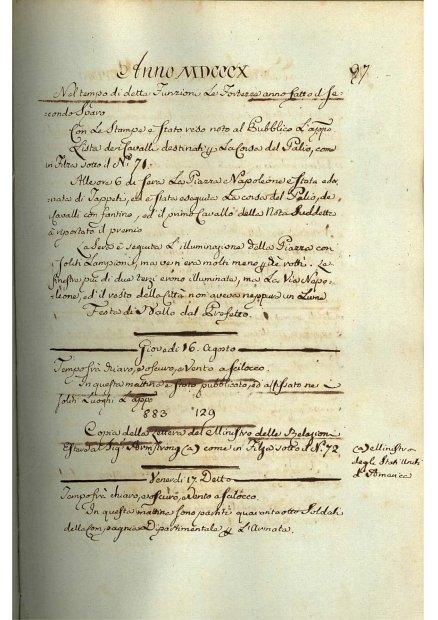 Anno MDCCCX
97
Nel tempo di dette Funzioni Le Fortezze anno fatto il se-
condo Sparo
Con Le Stampe è stato reso noto al Pubblico L'app.o
Lista dei Cavalli destinati p. La Corsa del Palio, come
in Filza sotto il N.o 71.
Alle ore 6 di sera La Piazza Napoleone è stata ador-
nata di Tappeti, ed è stata eseguita La corsa del Palio, de
Cavalli con fantino, ed il primo Cavallo della Nota suddetta
à riportato il premio
La sera è seguita L'illuminazione della Piazza con
soliti Lampioni, ma ven'era molti meno, de rotti. Le
finestre più di due terzi erono illuminate, ma La Via Napo-
leone, ed il resto della Città non aveva neppure un Lume
Festa di Ballo dal Prefetto.
Giovedì 16. Agosto
Tempo frà chiaro, e oscuro, e vento a scilocco.
In questa mattina è stato pubblicato, ed affissato ne
soliti Luoghi L'app.o
883 129
Copia della Lettera del Ministro delle Relazioni
Estere al Sig.r Armstrong (a) come in Filza sotto il N.o 72
(a) Ministro
degli Stati Uniti
d'America
Venerdì 17. Detto
Tempo frà chiaro, e oscuro, e vento a scilocco.
In questa mattina sono partiti quarantotto Soldati
della Compagnia Dipartimentale p. L'Armata.